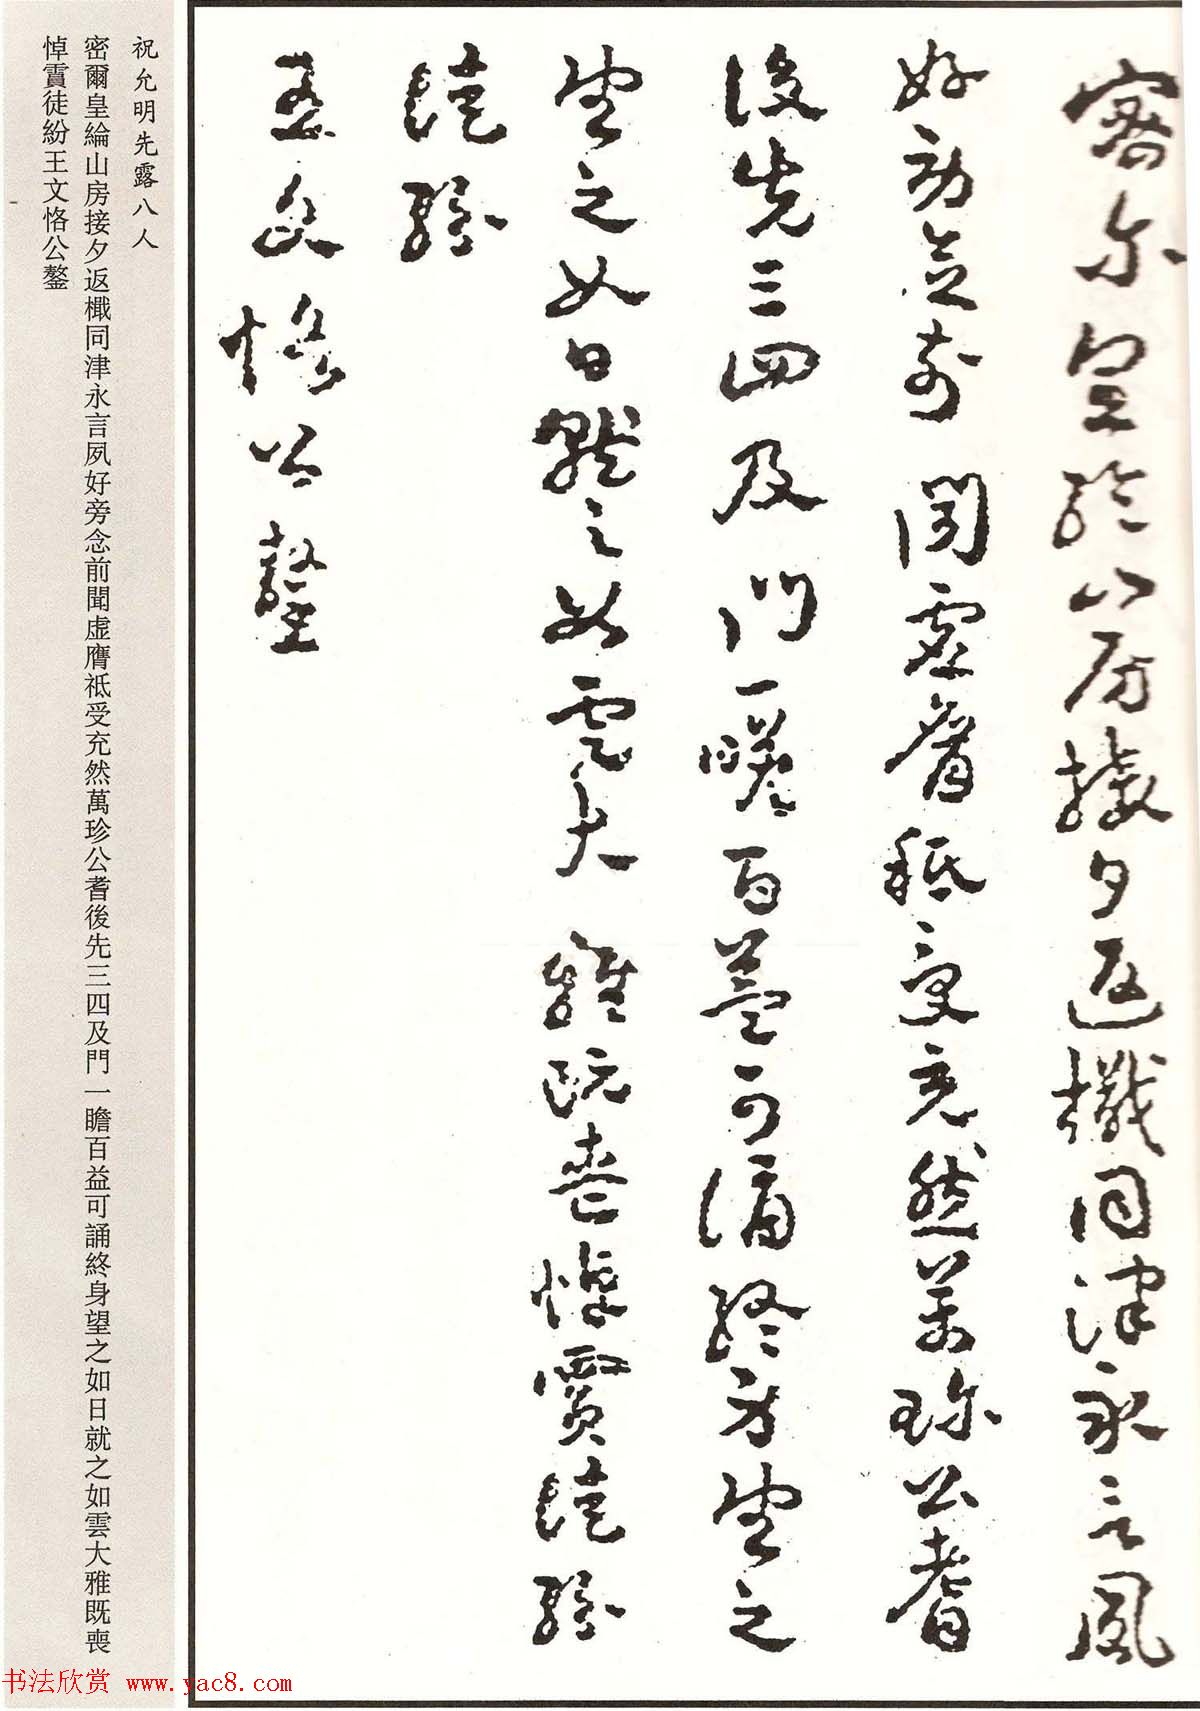 密尔皇綸山房接夕返檝同津永言夙
好旁念前聞虚膺祗受充然萬珍公耆
後先三四及門一瞻百益可誦終身望之
望之如日就之如雲大雅既喪悼霣徒紛
徒紛
王文恪公鏊
祝允明先露八人
密爾皇綸山房接夕返檝同津永言夙好旁念前聞虚膺祗受充然萬珍公耆後先三四及門一瞻百益可誦終身望之如日就之如雲大雅既喪
悼霣徒紛王文恪公鏊
书法欣赏 www.yac8.com